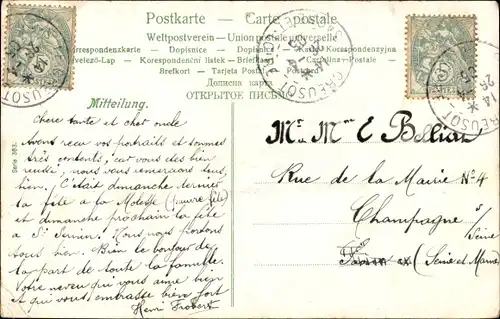 Postkarte — Carte postale
Weltpostverein — Union postale universelle
Correspondenzkarte — Dopisnice — Korespondencyjna
Levelező-Lap — Korespondenční listek — Cartolina-Postale
Brefkort — Tarjeta Postal — Postcard
Дописна карта
ОТКРЫТОЕ ПИСЬМО
CREUSOT
CREUSOT
CREUSOT
Mitteilung.
Chère tante et cher oncle
Avons reçu vos portraits et sommes
très contents, car vous êtes bien
nous vous remercions tous,
bien. C'était dimanche dernier
la fête à la Molette (pauvre fête)
et dimanche prochain la fête
à St Firmin. Nous nous portons
tous bien. Bien le bonjour de
la part de toute la famille.
Votre neveu qui vous aime bien
et qui vous embrasse bien fort
Henri Frobert
Serie 383.
Mr. Mme E Belliar
Rue de la Mairie N° 4
Champagne s/
Seine
(Seine et Marne